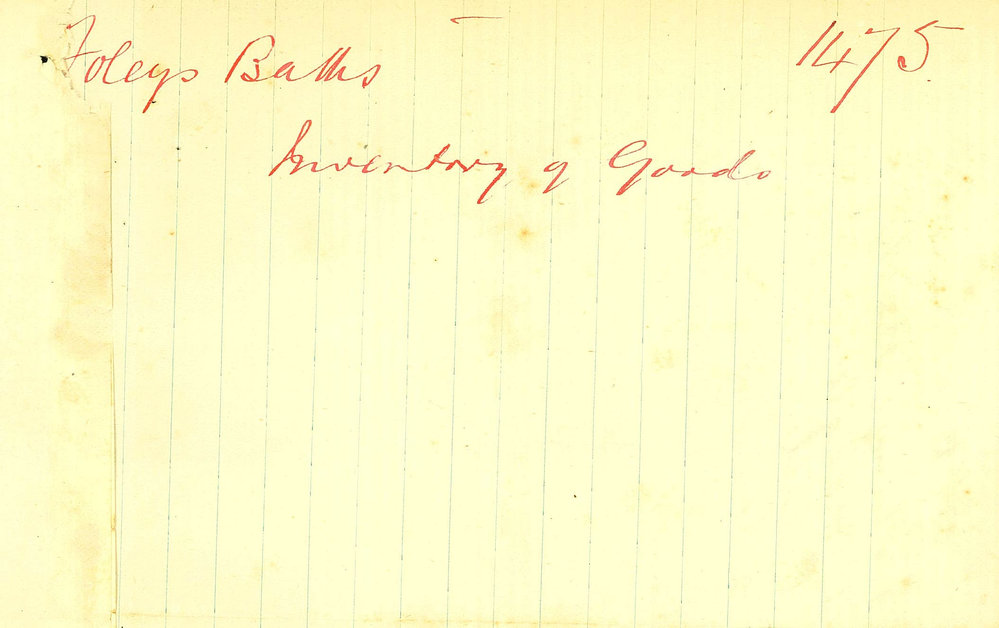 Foleys Baths 1475.
Inventory of Goods